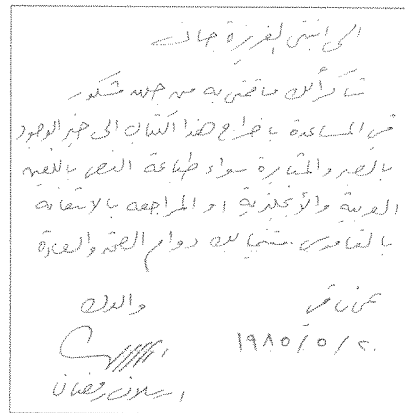 الى ابنتي العزيزة جانـ
شاكراً لك ما قمتي به من جهد مشكور
في المساعدة باخراج هذا الكتاب الى حيز الوجود
بالصبر والمثابرة سواء طباعة النص باللغتين
العربية والأنجليزية او المراجعة بالاستعانة
بالقاموس متمنيا لك دوام الصحة والسعادة
عمان في والدك
١٩٨٥/٥/٢٠
ارسلان رمضان